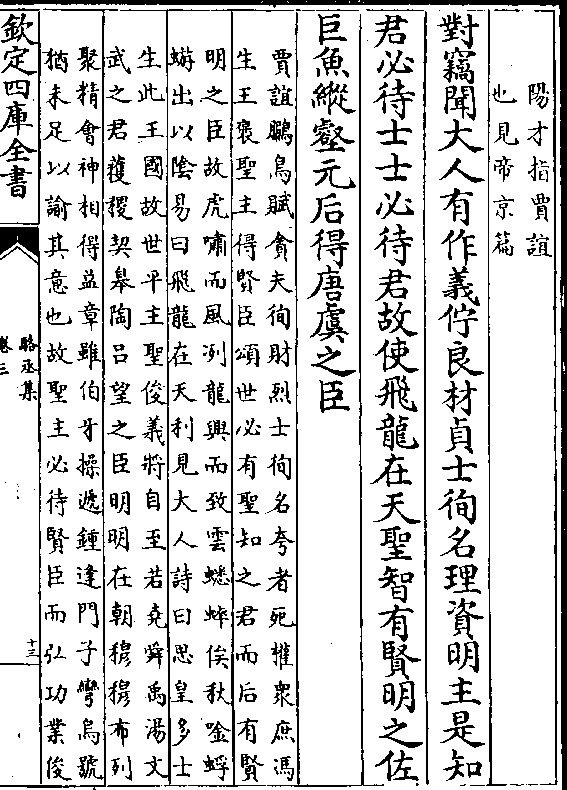 陽才指賈誼
也見帝京篇
對竊聞大人有作義佇良材貞士徇名理資明主是知
君必待士士必待君故使飛龍在天聖智有賢明之佐
巨魚縱壑元后得唐虞之臣
賈誼鵩鳥賦貪夫徇財烈士徇名夸者死權衆庶馮
生王襃聖主得賢臣頌世必有聖知之君而后有賢
明之臣故虎嘯而風冽龍興而致雲蟋蟀俟秋唫蜉
蝣出以陰易曰飛龍在天利見大人詩曰思皇多士
生此王國故世平主聖俊義將自至若堯舜禹湯文
武之君獲稷契臯陶呂望之臣明明在朝穆穆布列
聚精會神相得益章雖伯牙操遞鍾逢門子彎烏號
猶未足以諭其意也故聖主必待賢臣而弘功業俊
欽定四庫全書
駱丞集
卷三
十三